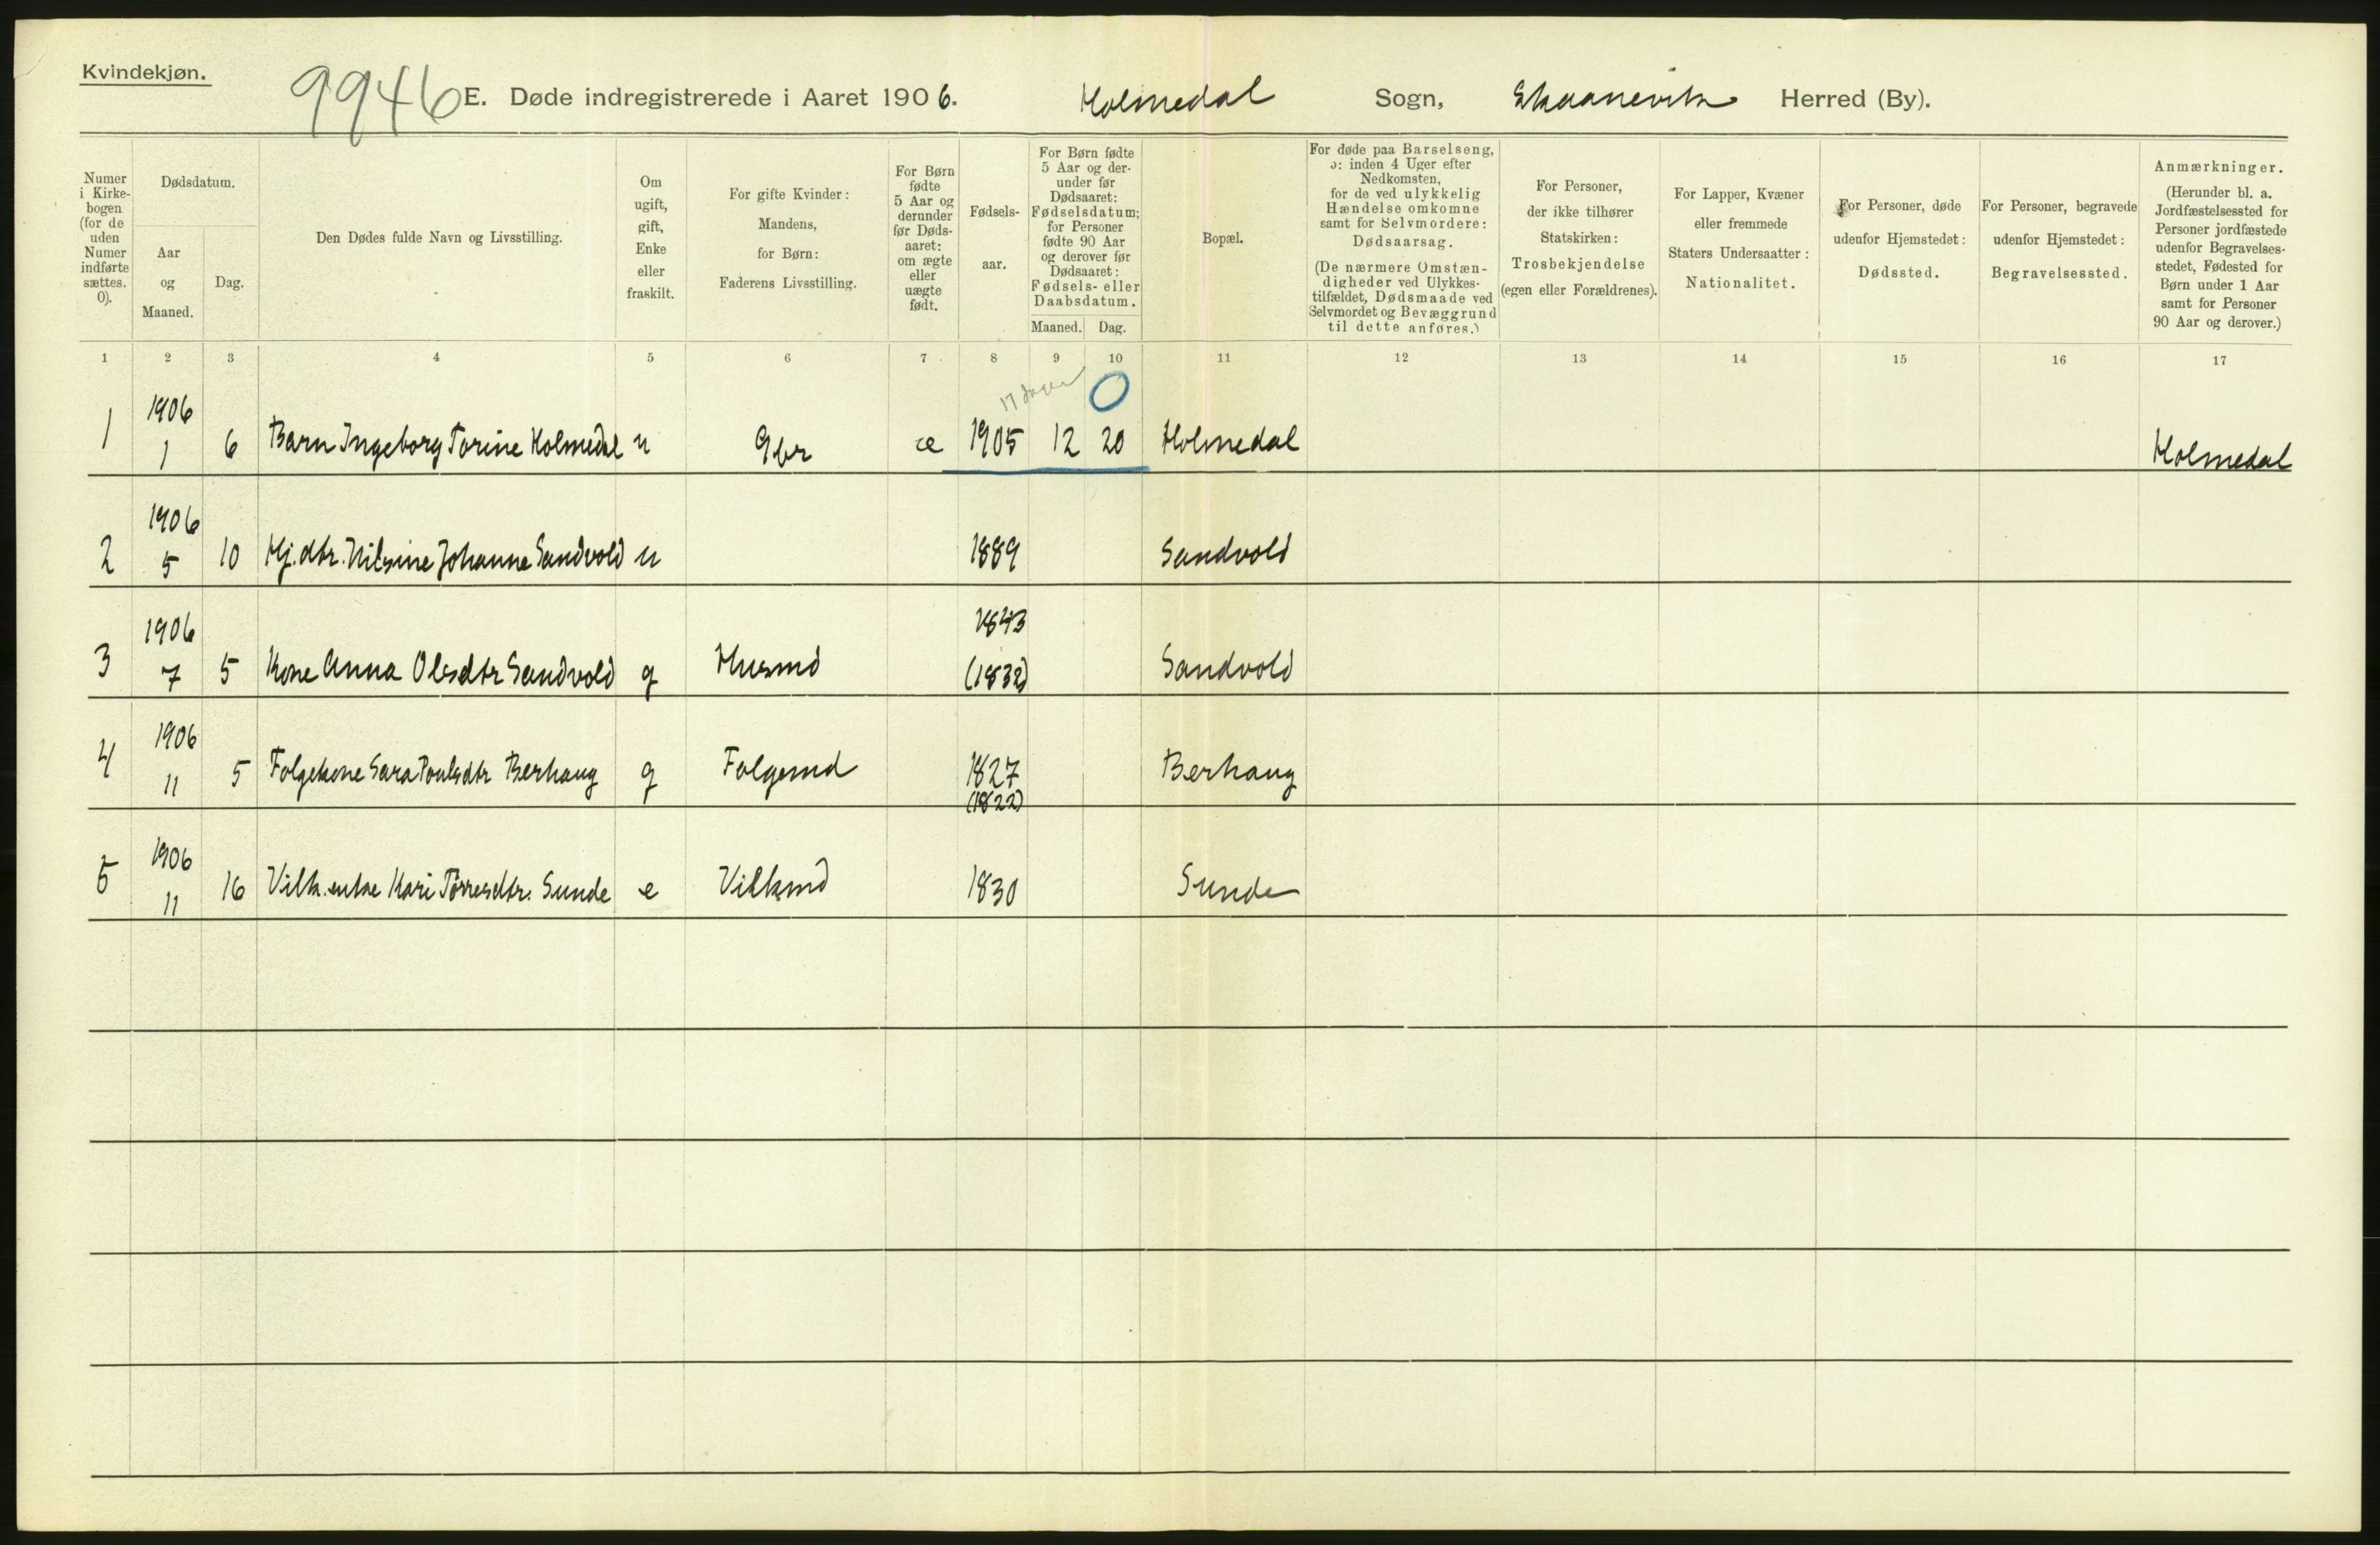 Kvindekjøn.
9946 E. Døde indregistrerede i Aaret 1906. Holmedal Sogn, Skaanevik Herred (By).
Numer i Kirkebogen (for de uden Numer indførte sættes. 0).
Dødsdatum.
Aar og Maaned.
Dag.
Den Dødes fulde Navn og Livsstilling.
Om ugift, gift, Enke eller fraskilt.
For gifte Kvinder: Mandens, for Børn: Faderens Livsstilling.
For Børn fødte 5 Aar og derunder før Dødsaaret: om ægte eller uægte født.
Fødselsaar.
For Børn fødte 5 Aar og derunder før Dødsaaret: Fødselsdatum; for Personer fødte 90 Aar og derover før Dødsaaret: Fødsels- eller Daabsdatum.
Maaned. Dag.
Bopæl.
For døde paa Barselseng, ɔ: inden 4 Uger efter Nedkomsten, for de ved ulykkelig Hændelse omkomne samt for Selvmordere: Dødsaarsag.
(De nærmere Omstændigheder ved Ulykkestilfældet, Dødsmaade ved Selvmordet og Bevæggrund til dette anføres.)
For Personer, der ikke tilhører Statskirken: Trosbekjendelse (egen eller Forældrenes).
For Lapper, Kvæner eller fremmede Staters Undersaatter: Nationalitet.
For Personer, døde udenfor Hjemstedet: Dødssted.
For Personer, begravede udenfor Hjemstedet: Begravelsessted.
Anmærkninger.
(Herunder bl. a. Jordfæstelsessted for Personer jordfæstede udenfor Begravelsesstedet, Fødested for Børn under 1 Aar samt for Personer 90 Aar og derover.)
1 2 3 4 5 6 7 8 9 10 11 12 13 14 15 16 17
17 0
1906
1 1 6 Barn Ingeborg Torine Holmedal u Gbr æ 1905 12 20 Holmedal Holmedal
1906
2 5 10 Hj. dtr. Nilsine Johanne Sandvold u 1889 Sandvold
1906 1843
3 7 5 Kone Anna Olsdtr Sandvold g Husmd (1832) Sandvold
1906
4 11 5 Folgekone Sara Poulsdtr Berhaug g Folgemd 1827 Berhaug
(1822)
1906
5 11 16 Vilk. enke Kari Tørresdtr. Sunde e Vilkmd 1830 Sunde